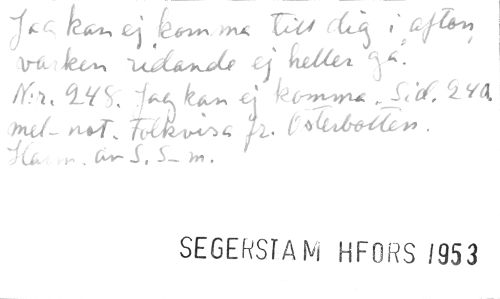 Jag kan ej komma till dig i afton,
varken ridande ej heller gå."
N:r. 248. Jag kan ej komma. Sid. 240.
mel-not. Folkvisa fr. Österbotten.
Harm. av S. S-m.
SEGERSTAM HFORS 1953